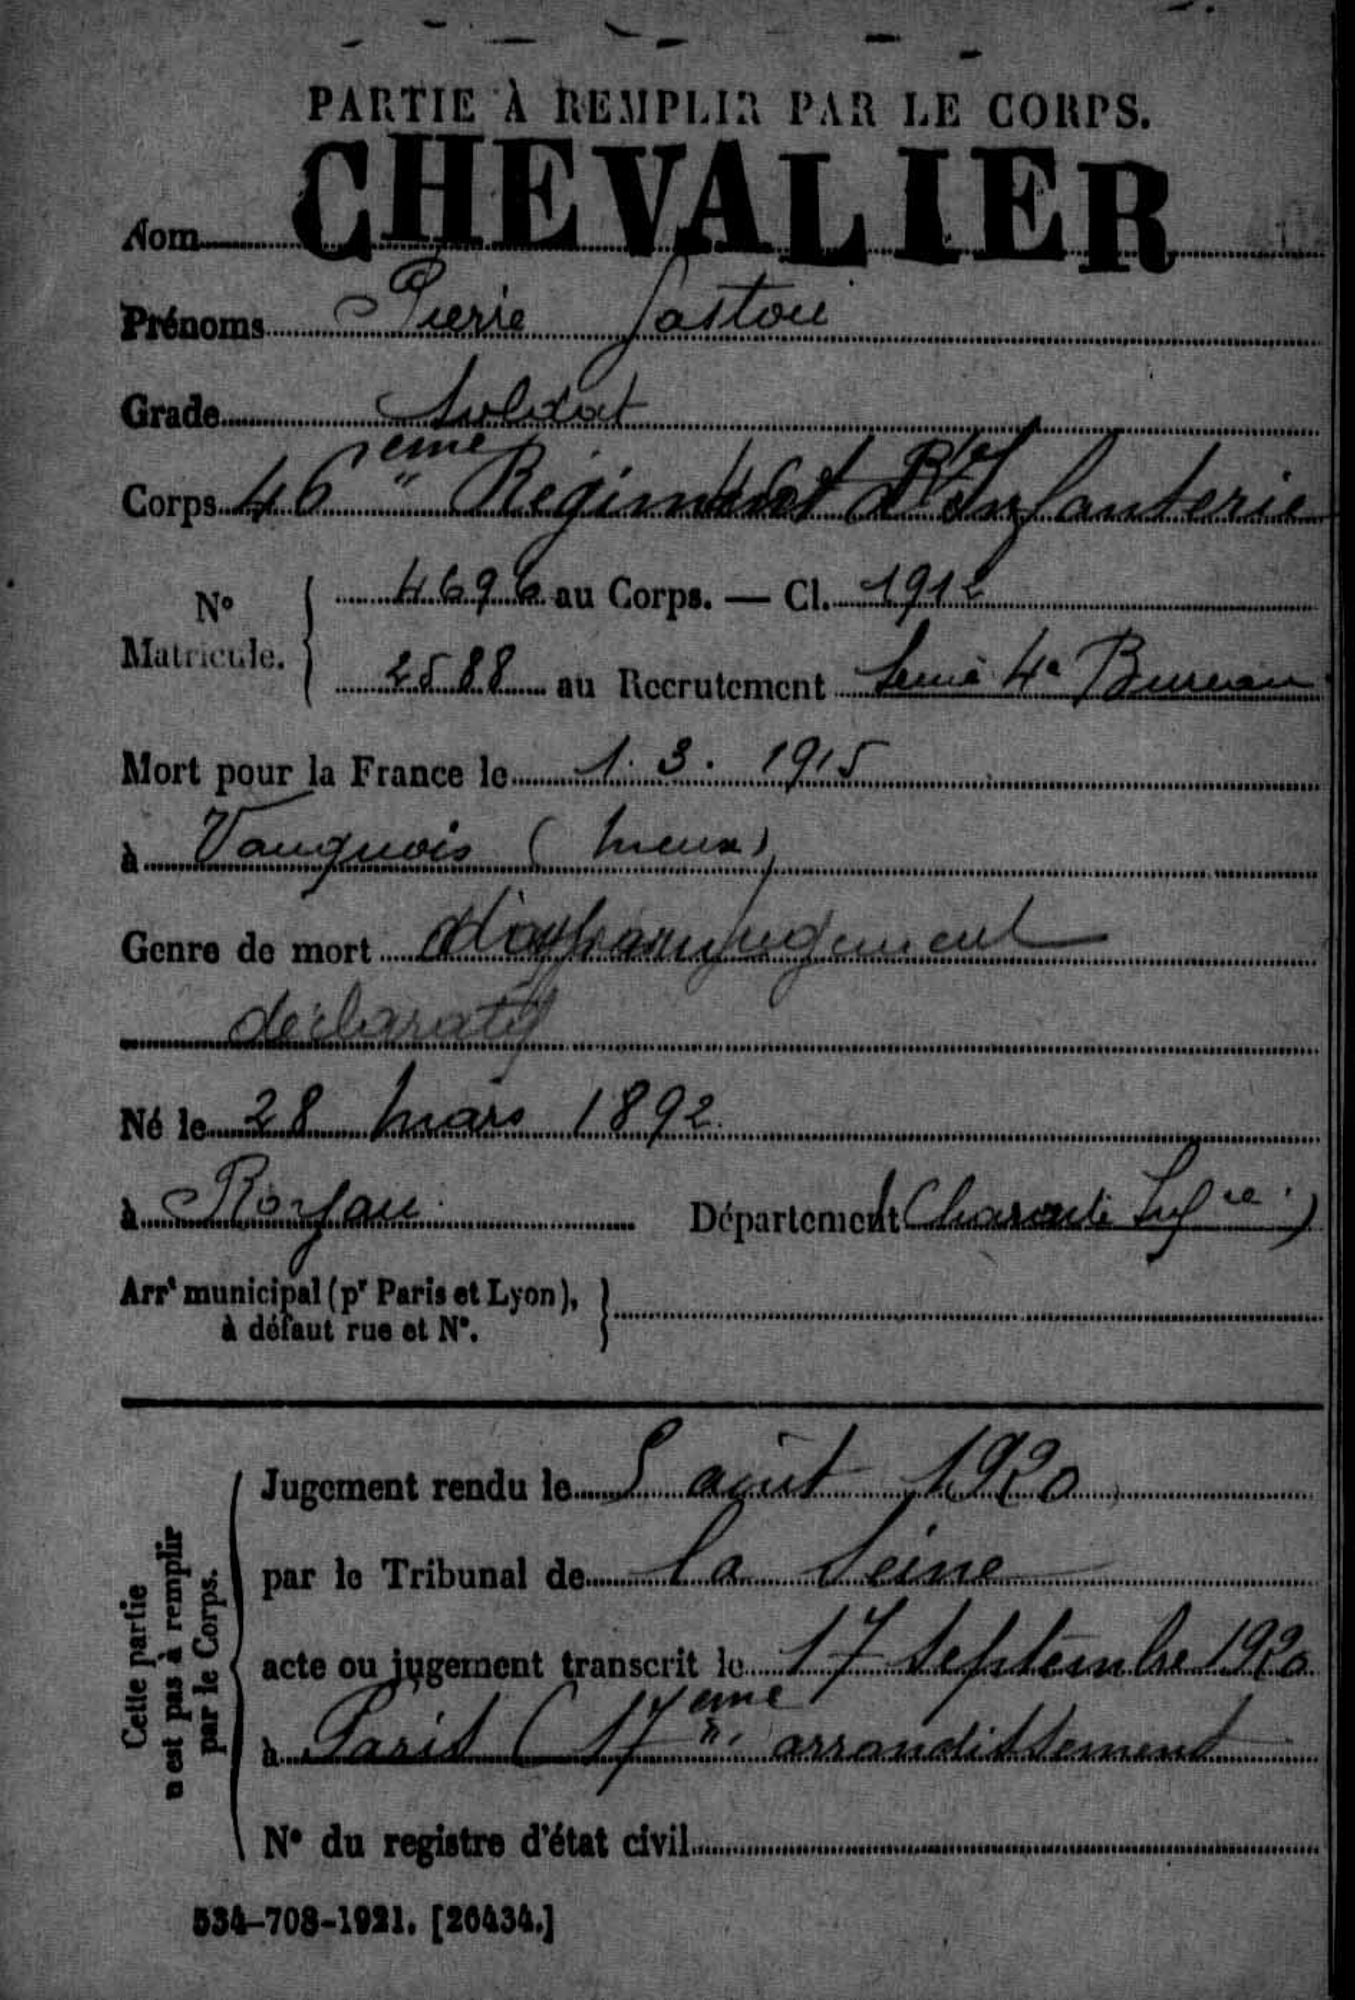 PARTIE À REMPLIR PAR LE CORPS.
Nom CHEVALIER
Prénoms Pierre Gaston
Grade Soldat
Corps 46 ème Régiment d'Infanterie
N° Matricule. 4696 au Corps. — Cl. 1912
2588 au Recrutement Seine 4e Bureau
Mort pour la France le 1. 3. 1915
à Vauquois (Meuse)
Genre de mort jugement
déclaratif
Né le 28 Mars 1892
à Royan Département (Charente Infre)
Arrt municipal (pr Paris et Lyon),
à défaut rue et N°.
Cette partie
n'est pas à remplir
par le Corps.
Jugement rendu le 5 août 1920
par le Tribunal de la Seine
acte ou jugement transcrit le 17 Septembre 1920
à Paris (17 ème arrondissement
N° du registre d'état civil
534-708-1921. [26434.]